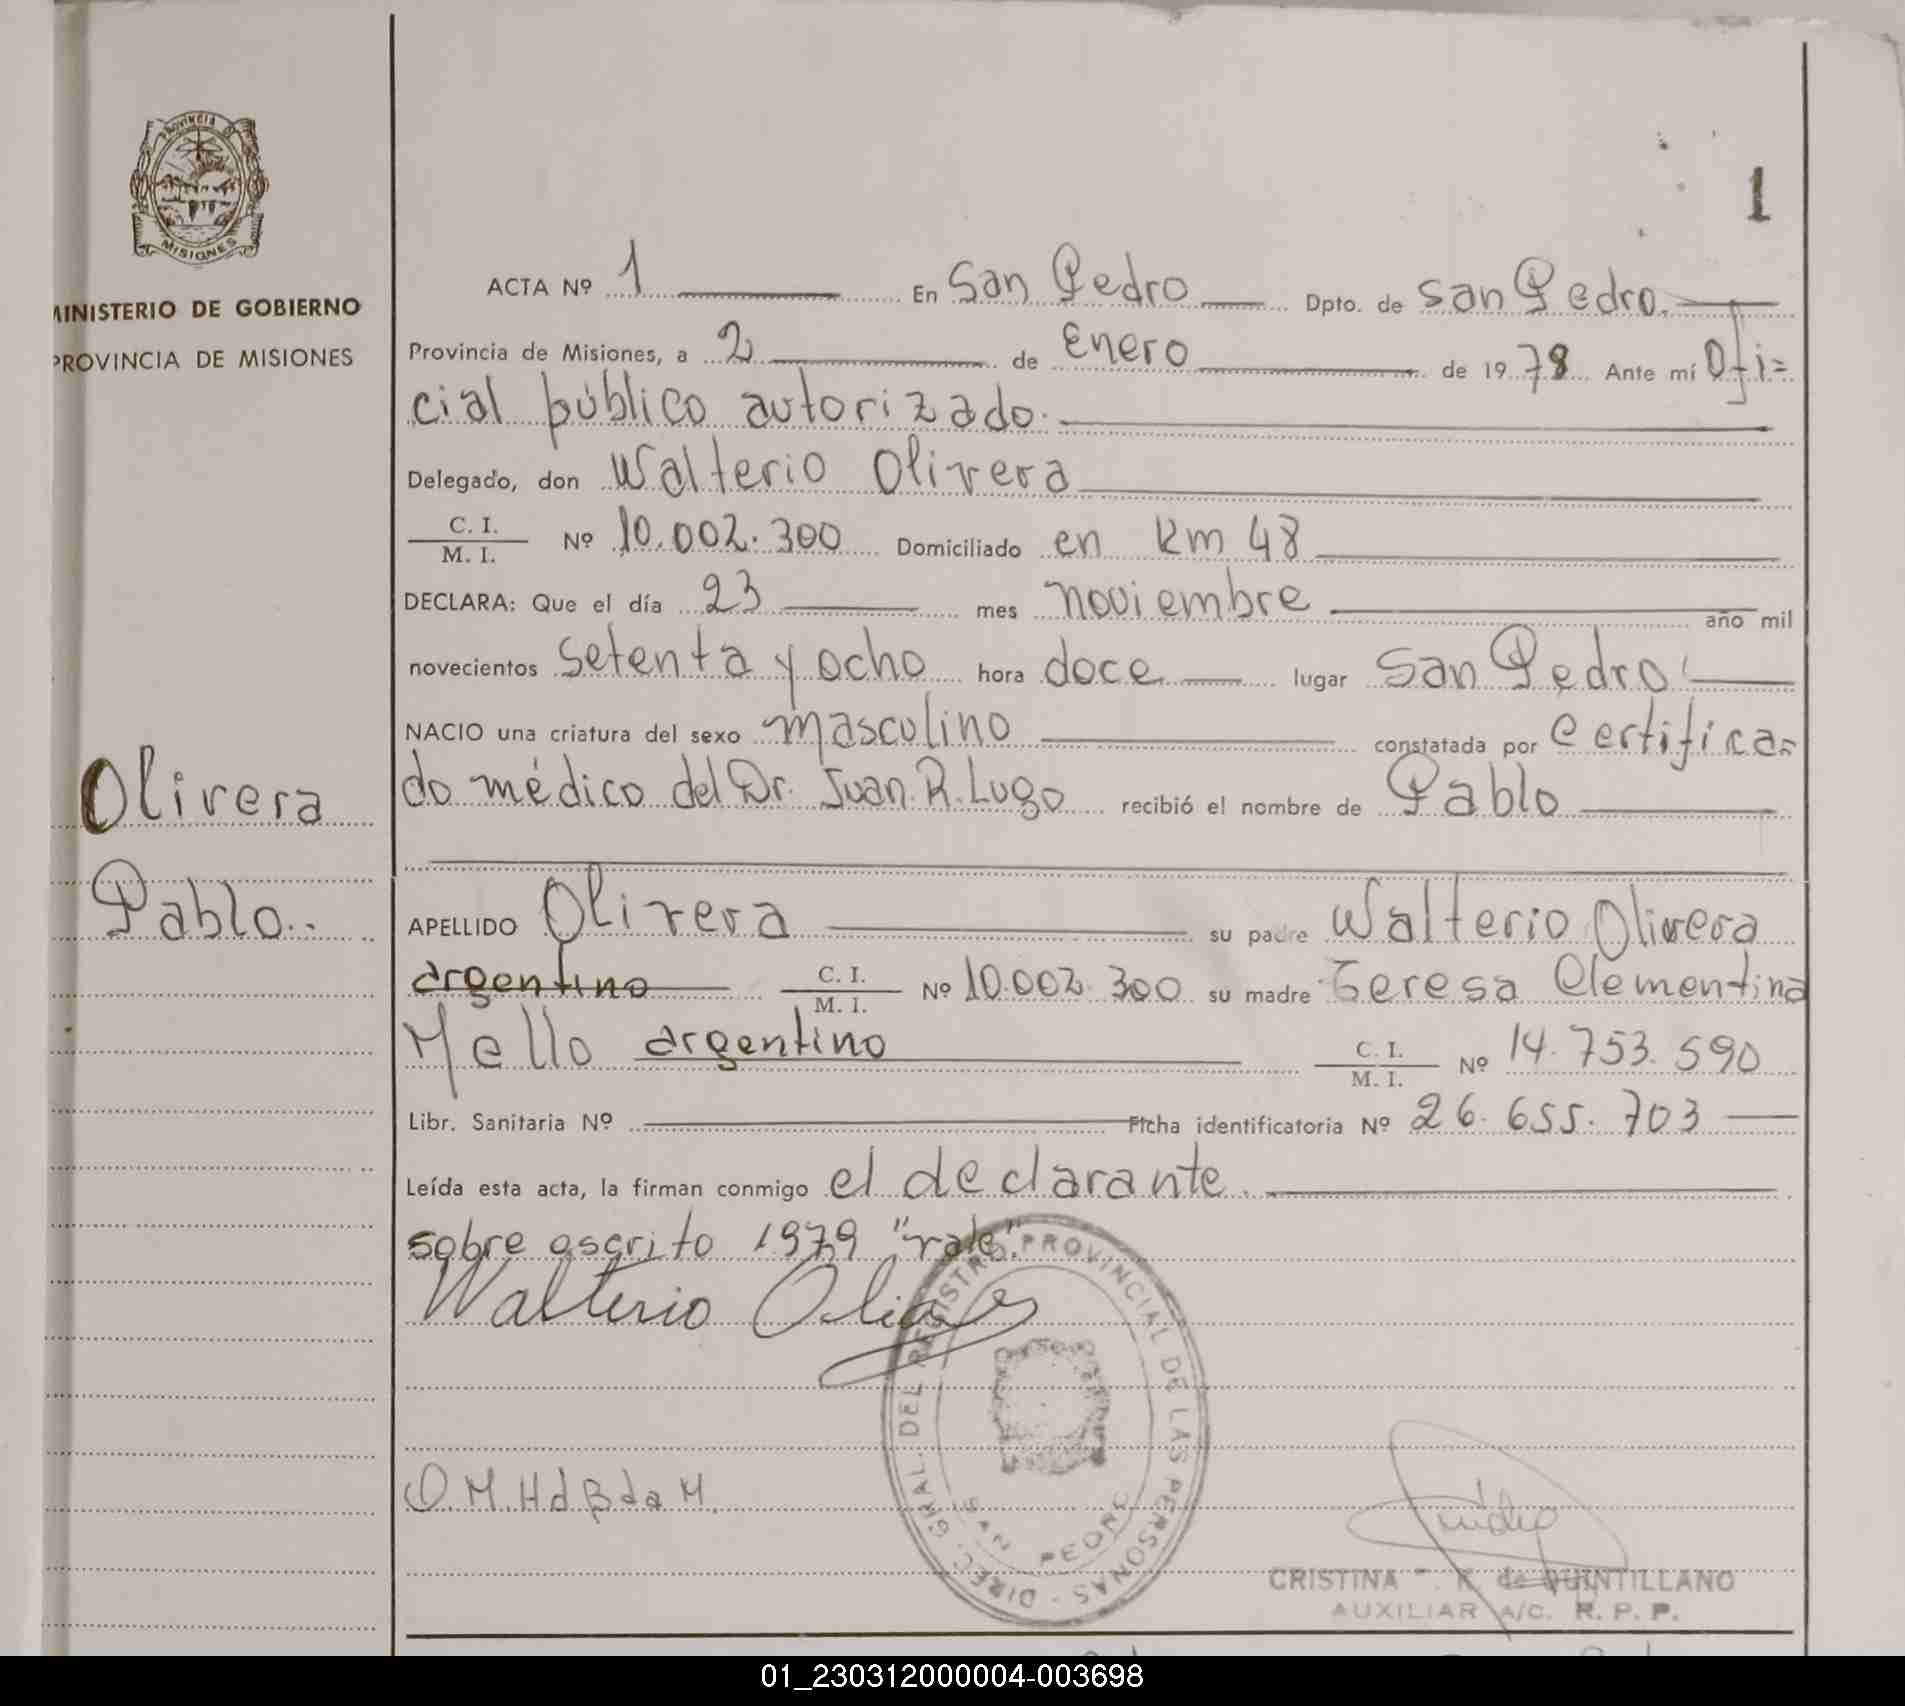 PROVINCIA D
MISIONES
MINISTERIO DE GOBIERNO
PROVINCIA DE MISIONES
1
ACTA Nº 1 En San Pedro Dpto. de San Pedro.
Provincia de Misiones, a 2 de Enero de 1978 Ante mí Ofi=
cial público autorizado.
Delegado, don Walterio Olivera
C. I. / M. I. Nº 10.002.300 Domiciliado en Km 48
DECLARA: Que el día 23 mes noviembre año mil
novecientos setenta y ocho hora doce lugar San Pedro
NACIO una criatura del sexo masculino constatada por certifica=
do médico del Dr. Juan R. Lugo recibió el nombre de Pablo
Olivera
Pablo..
APELLIDO Olivera su padre Walterio Olivera
argentino C. I. / M. I. Nº 10.002.300 su madre Teresa Clementina
Mello argentino C. I. / M. I. Nº 14.753.590
Libr. Sanitaria Nº Ficha identificatoria Nº 26.655.703
Leída esta acta, la firman conmigo el declarante.
sobre escrito 1979 "vale".
Walterio Olivera
DIREC. GRAL. DEL REGISTRO PROVINCIAL DE LAS PERSONAS -
SAN PEDRO
O.M.HdBdaM.
CRISTINA K. de QUINTILLANO
AUXILIAR A/C. R. P. P.
01_230312000004-003698